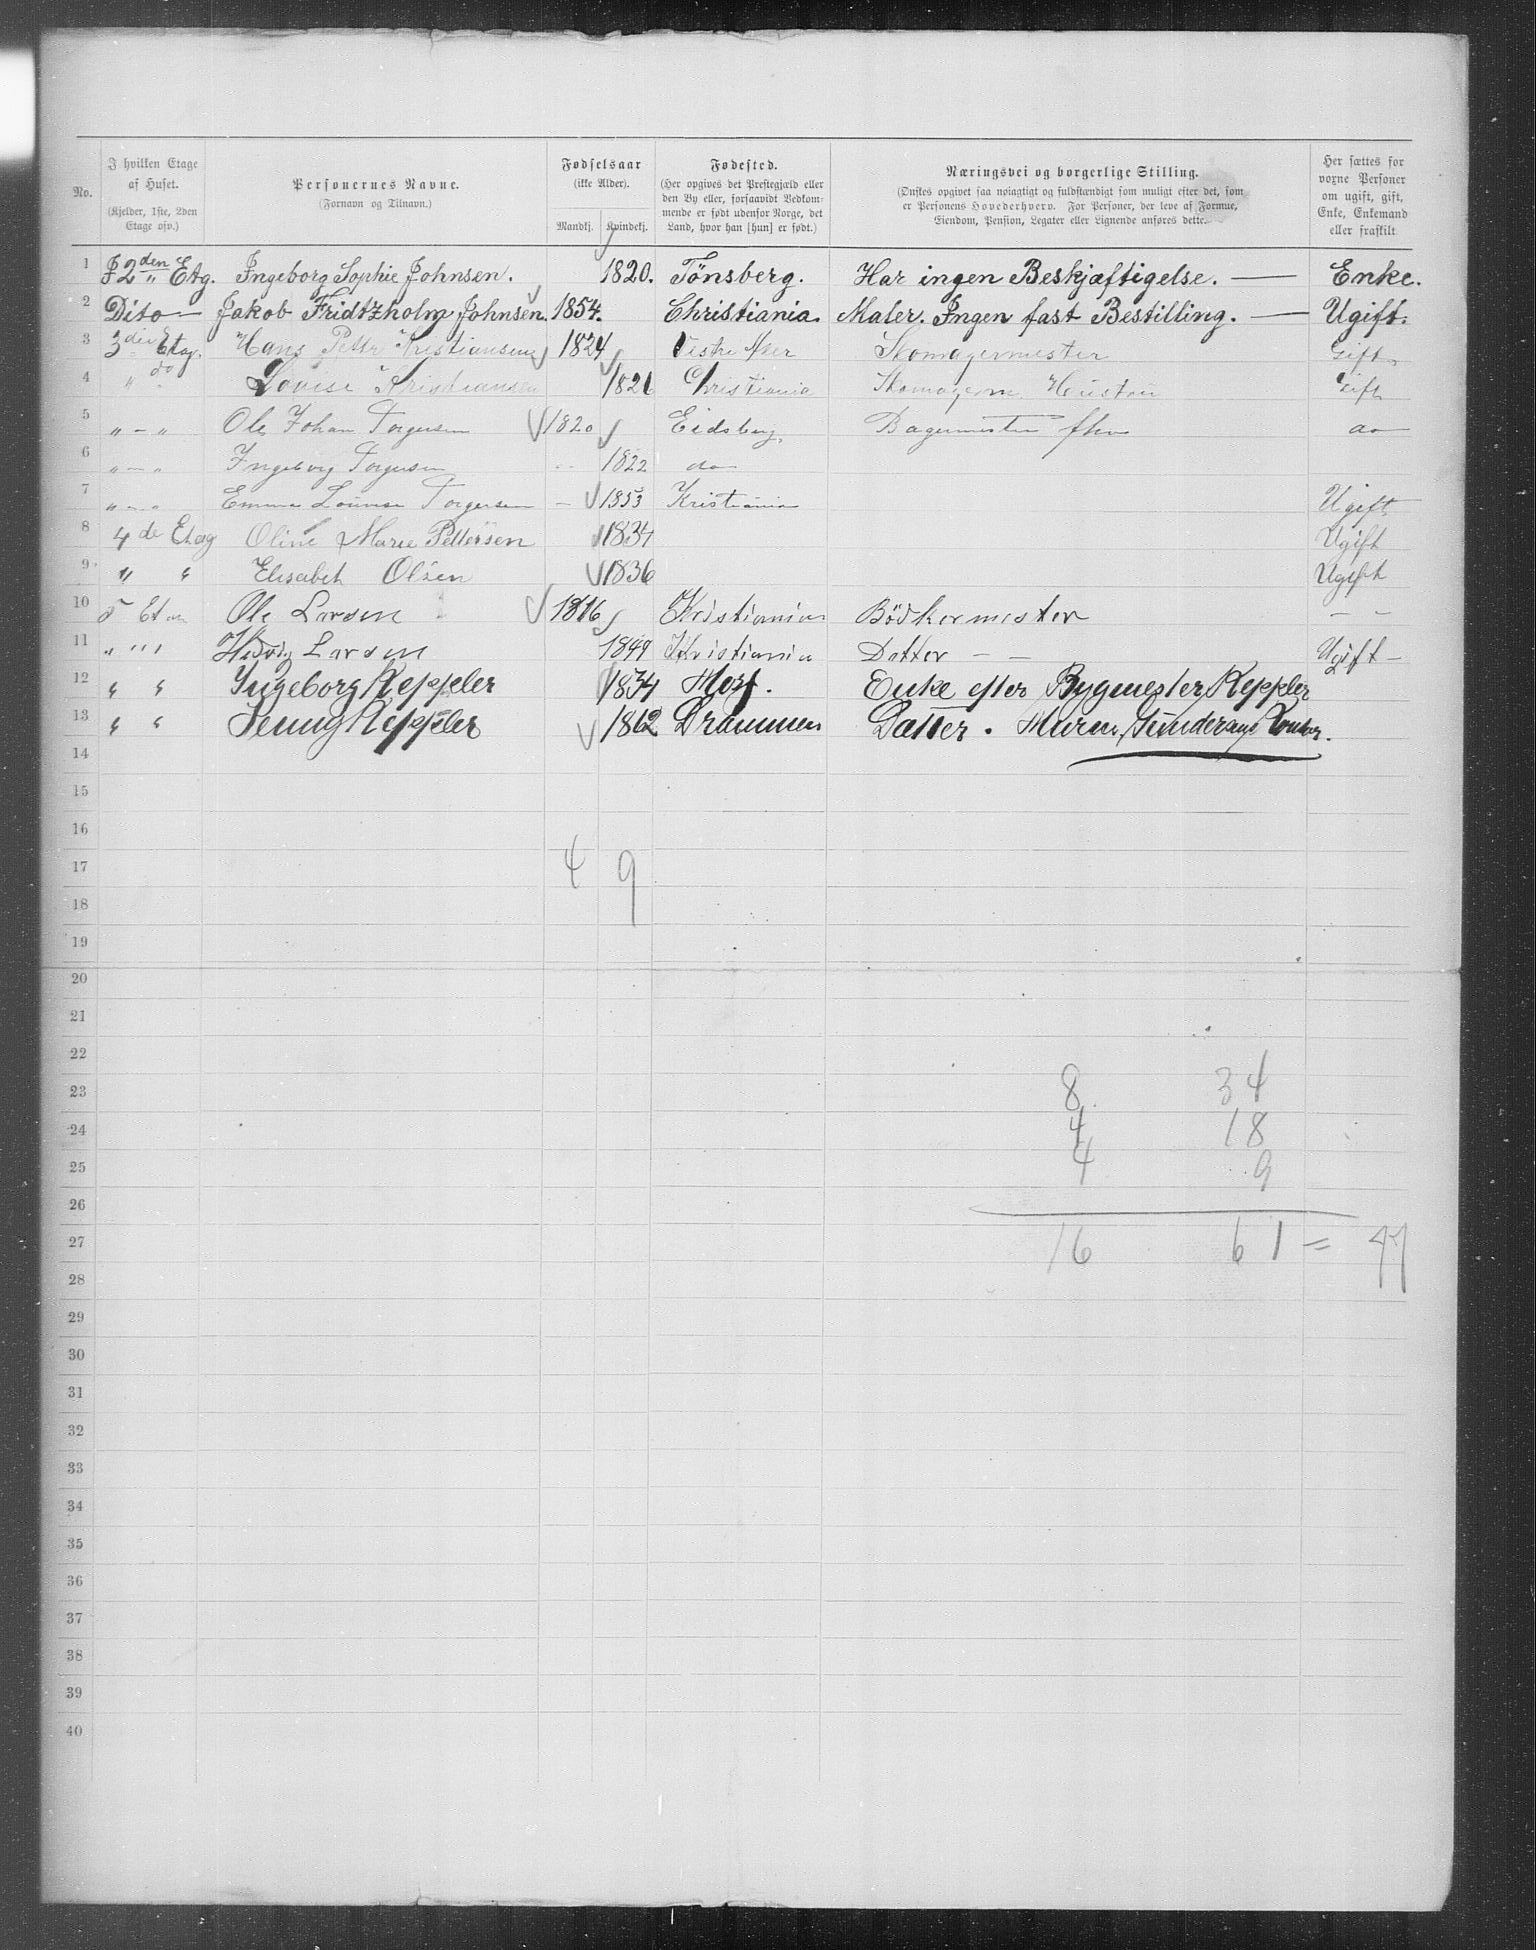 No. | I hvilken Etage af Huset. (Kjelder, 1ste, 2den Etage osv.) | Personernes Navne. (Fornavn og Tilnavn.) | Fødselsaar (ikke Alder). Mandkj. | Kvindekj. | Fødested. (Her opgives det Prestegjæld eller den By eller, forsaavidt Vedkommende er født udenfor Norge, det Land, hvor han [hun] er født.) | Næringsvei og borgerlige Stilling. (Ønskes opgivet saa nøiagtigt og fuldstændigt som muligt efter det, som er Personens Hovederhverv. For Personer, der leve af Formue, Eiendom, Pension, Legater eller Lignende anføres dette. | Her sættes for voxne Personer om ugift, gift, Enke, Enkemand eller fraskilt
1 I 2den Etg. Ingeborg Sophie Johnsen. 1820. Tönsberg. Har ingen Beskjæftigelse. — Enke.
2 Dito — Jakob Fridtzholm Johnsen. 1854. Christiania. Maler. Ingen fast Bestilling. — Ugift.
3 3die Etag. Hans Petter Kristiansen 1824 Vestre Aker Skomagermester Gift
4 " do Lovise Kristiansen 1826 Christiania Skomagerm Hustru Gift
5 " - " Ole Johan Torgersen 1820 Eidsberg, Bagermester do
6 " - " Ingeborg Torgersen 1822 do
7 " - " Emma Lovise Torgersen — 1853 Kristiania Ugift
8 4de Etag Oline Marie Pettersen 1834 Ugift
9 " " Elisabeth Olsen 1836 Ugift
10 5 Etag Ole Larsen 1816 Kristiania Bödkermester - -
11 " " " Hedvig Larsen 1849 Kristiania Datter - - Ugift -
12 " " Ingeborg Keppler 1834 Moss. Enke efter Bygmester Keppler
13 " " Jenny Keppler 1862 Drammen Datter.
14
15
16
17 4 9
18
19
20
21
22
23 8 34
24 4 18
25 4 9
26
27 16 61 = 77
28
29
30
31
32
33
34
35
36
37
38
39
40